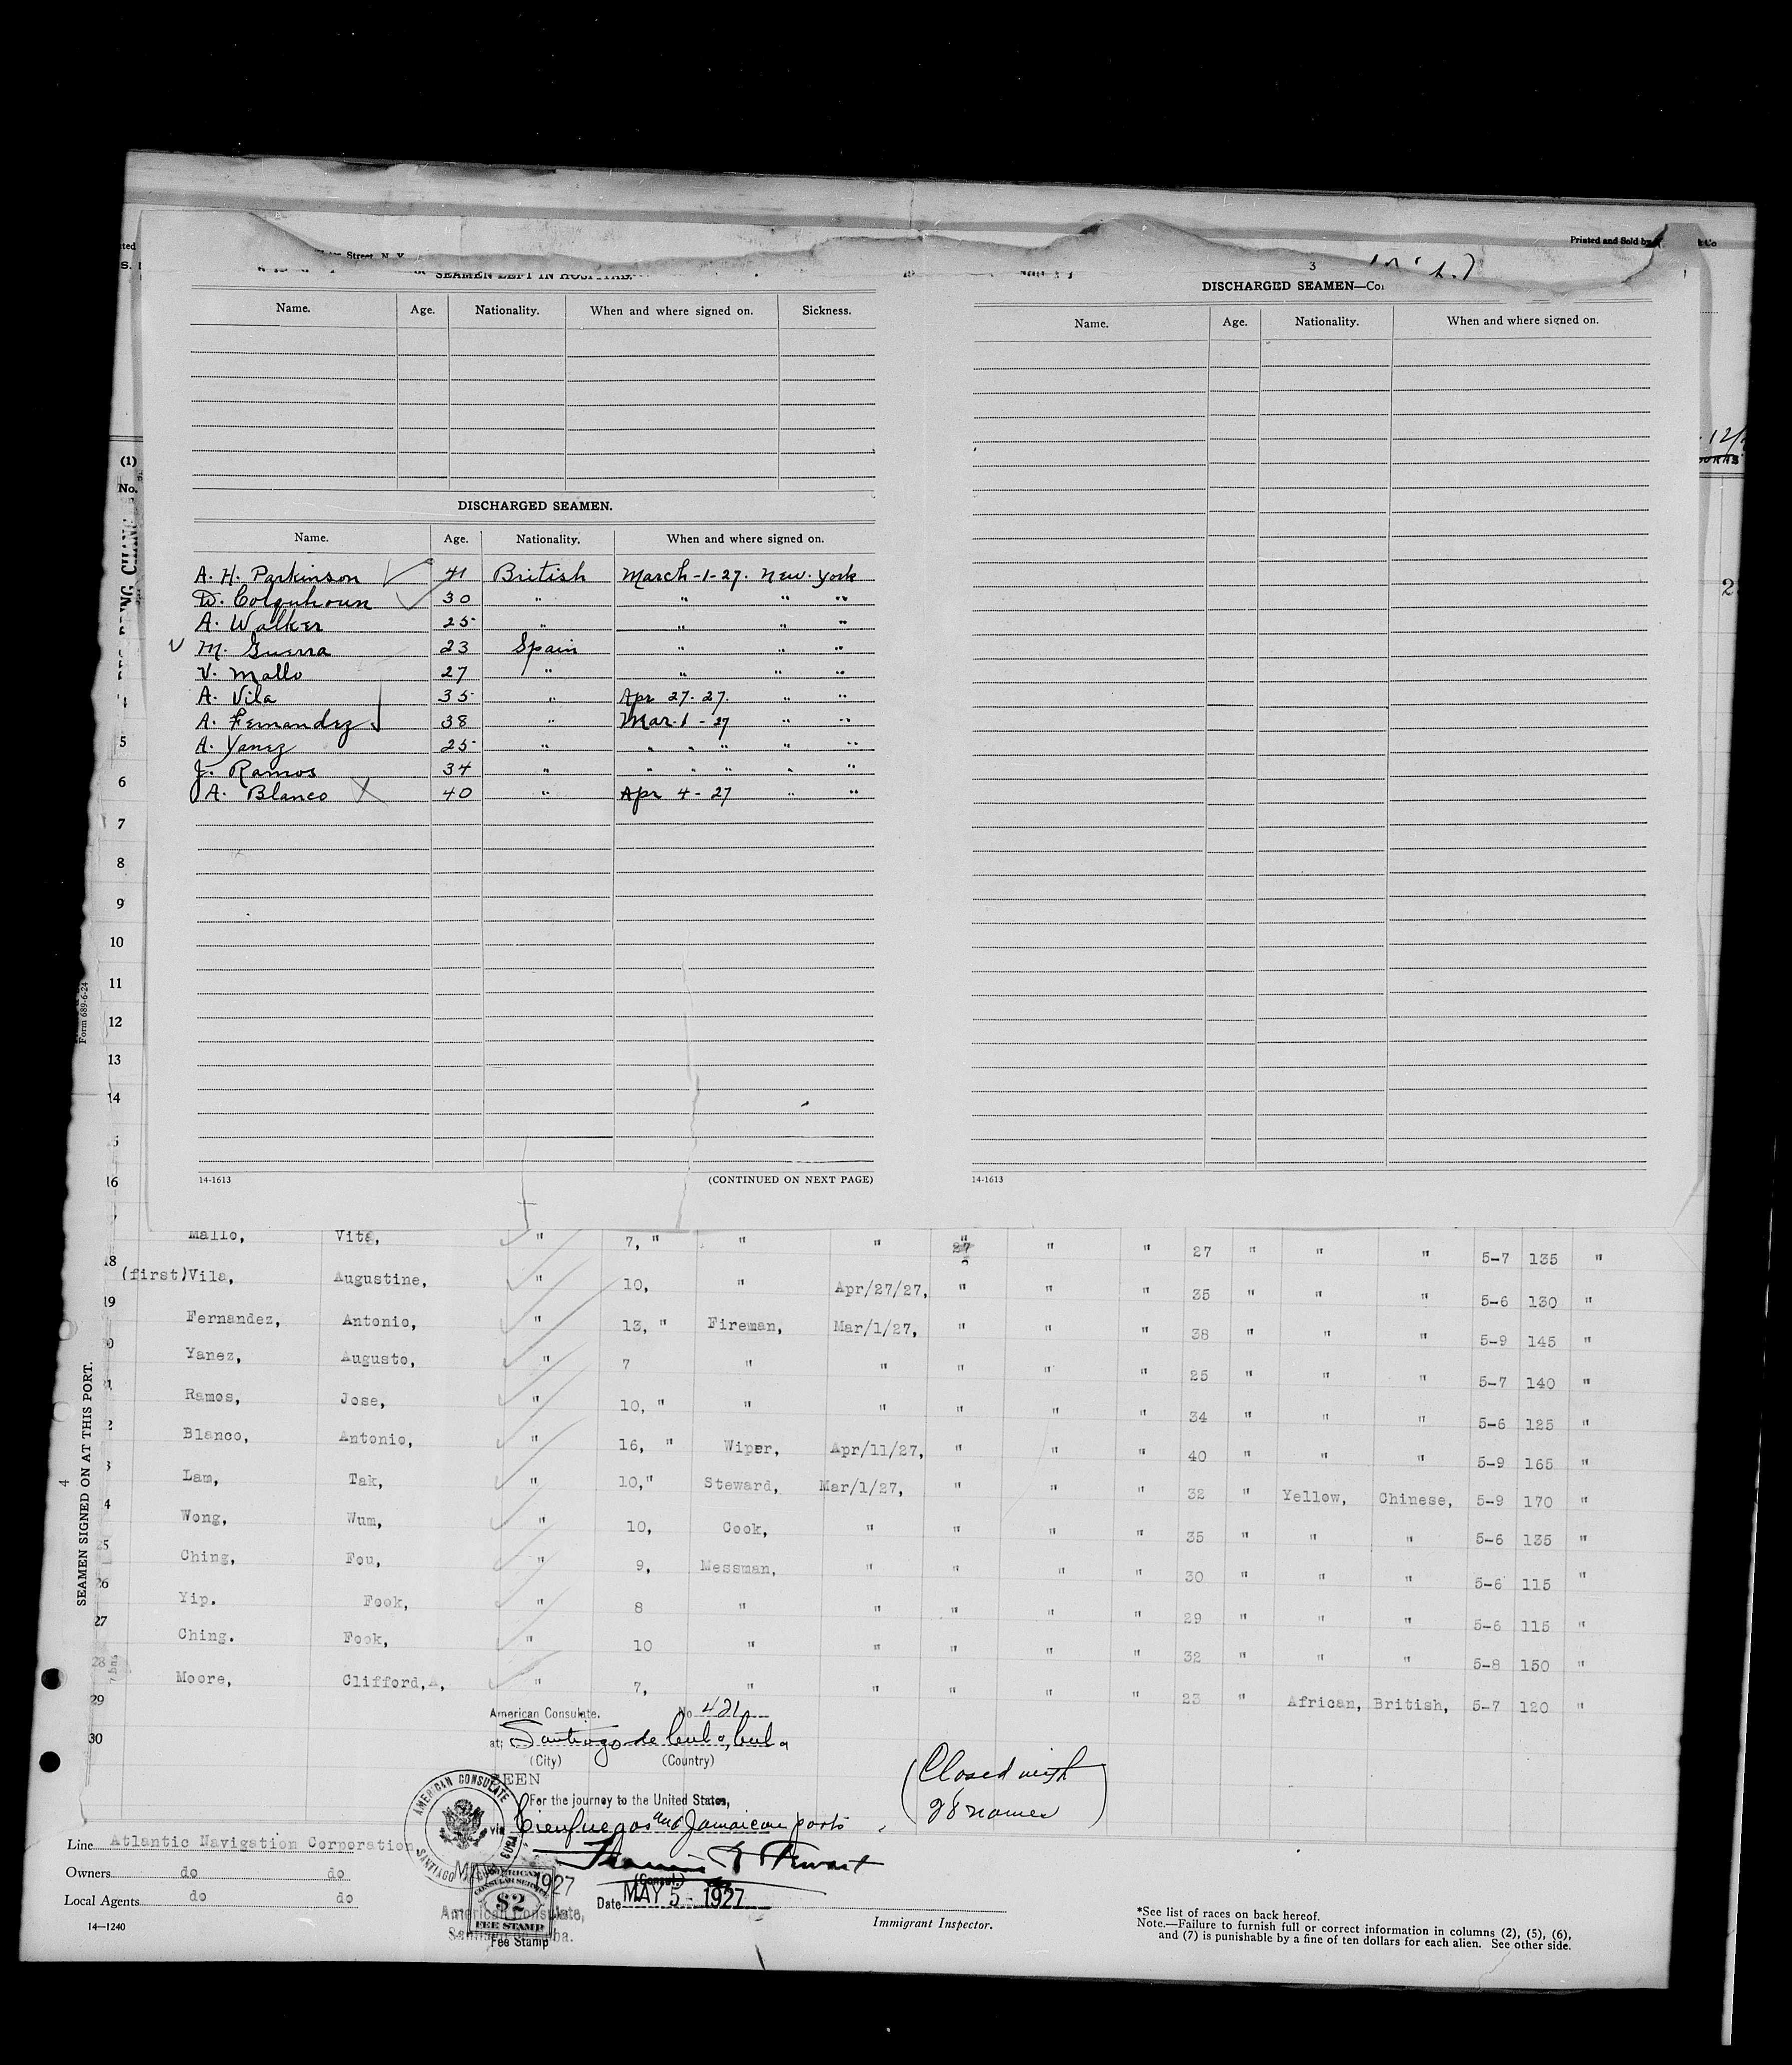 Street, N. Y.
Printed and Sold by
SEAMEN LEFT IN HOSPITAL.
Name. Age. Nationality. When and where signed on. Sickness.
DISCHARGED SEAMEN.
Name. Age. Nationality. When and where signed on.
A. H. Parkinson 41 British March-1-27. New. York
D. Colquhoun 30 " " " "
A. Walker 25 " " " "
M. Guerra 23 Spain " " "
V. Mallo 27 " " " "
A. Vila 35 " Apr 27. 27. " "
A. Fernandez 38 " Mar. 1 - 27 " "
A. Yanez 25 " " " " " "
J. Ramos 34 " " " " " "
A. Blanco 40 " Apr 4 - 27 " "
14-1613 (CONTINUED ON NEXT PAGE)
3
DISCHARGED SEAMEN—Co
Name. Age. Nationality. When and where signed on.
14-1613
(1)
No.
4
5
6
7
8
9
10
11
12
13
14
16
Form 689-6-24
SEAMEN SIGNED ON AT THIS PORT.
4
Mallo, Vita, " 7, " " " 27 " " 27 " " " 5-7 135 "
18 (first)Vila, Augustine, " 10, " Apr/27/27, " " " 35 " " " 5-6 130 "
19 Fernandez, Antonio, " 13, " Fireman, Mar/1/27, " " " 38 " " " 5-9 145 "
Yanez, Augusto, " 7 " " " " " 25 " " " 5-7 140 "
Ramos, Jose, " 10, " " " " " " 34 " " " 5-6 125 "
Blanco, Antonio, " 16, " Wiper, Apr/11/27, " " " 40 " " " 5-9 165 "
Lam, Tak, " 10," Steward, Mar/1/27, " " " 32 " Yellow, Chinese, 5-9 170 "
Wong, Wum, " 10, Cook, " " " " 35 " " " 5-6 135 "
25 Ching, Fou, " 9, Messman, " " " " 30 " " " 5-6 115 "
26 Yip. Fook, " 8 " " " " " 29 " " " 5-6 115 "
27 Ching. Fook, " 10 " " " " " 32 " " " 5-8 150 "
28 Moore, Clifford,A, " 7, " " " " " 23 " African, British, 5-7 120 "
29
30
American Consulate. No 421
at: Santiago de Cuba, Cuba
(City) (Country)
SEEN
For the journey to the United States,
via Cienfuegos and Jamaican ports
(Closed with
28 names)
AMERICAN CONSULATE
SANTIAGO CUBA
(Consul.)
Date MAY 5 - 1927
MAY 1927
AMERICAN CONSULAR SERVICE
$2
FEE STAMP
American Consulate,
Santiago de Cuba.
Fee Stamp
Line Atlantic Navigation Corporation
Owners do do
Local Agents do do
14—1240
Immigrant Inspector.
*See list of races on back hereof.
Note.—Failure to furnish full or correct information in columns (2), (5), (6),
and (7) is punishable by a fine of ten dollars for each alien. See other side.